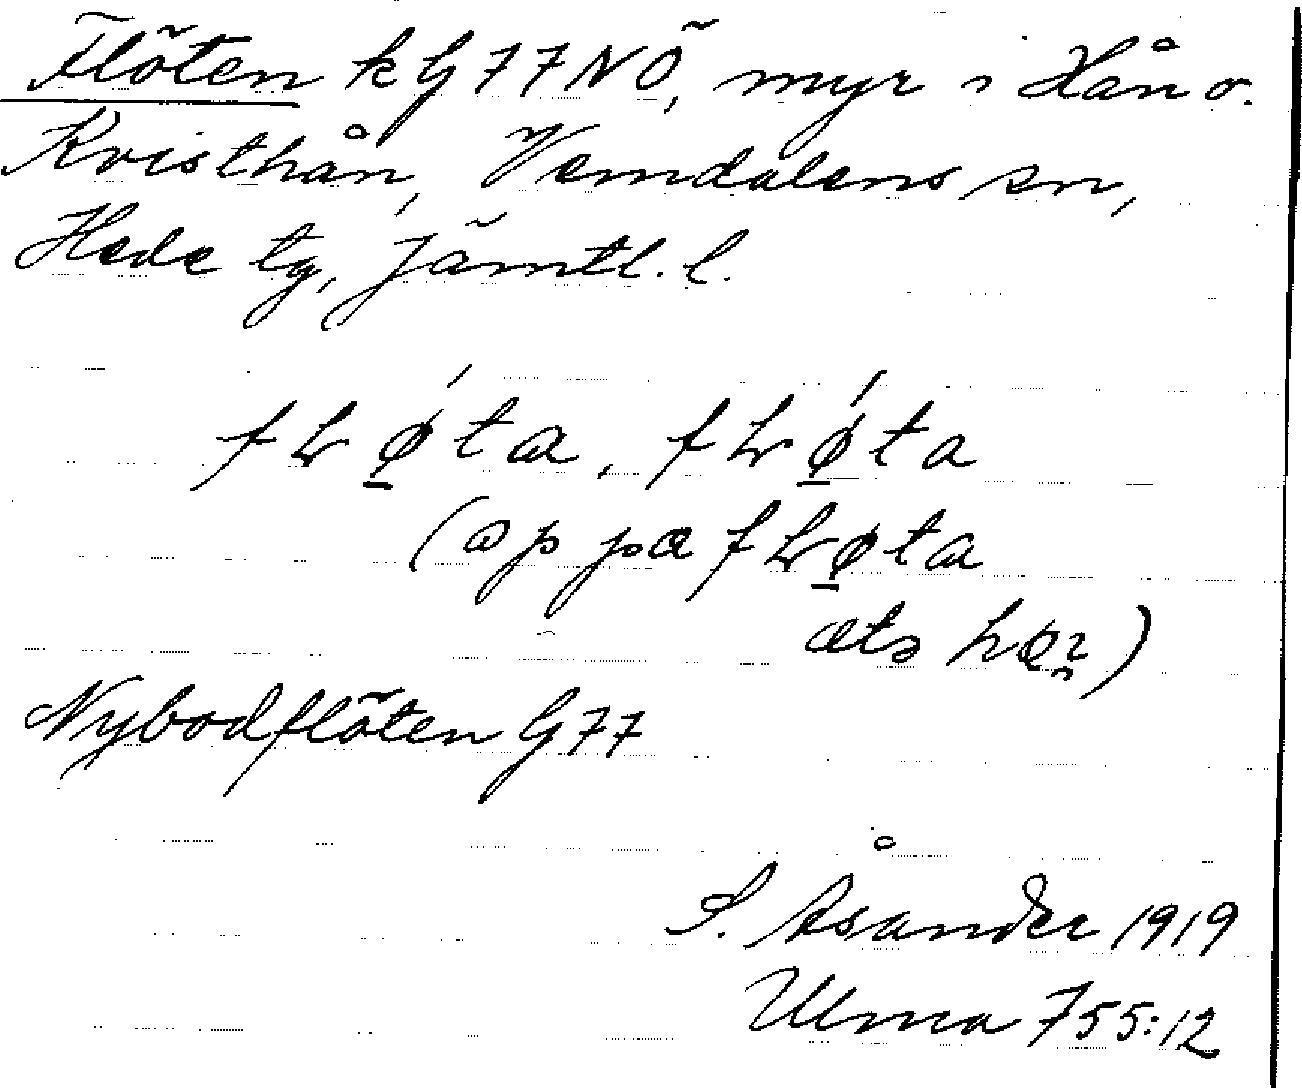 Flöten k G 77 NÖ, myr i Hån o.
Kvisthån, Vemdalens sn,
Hede tg, Jämtl. l.
fLǿ̱ta, fLǿ̱ta
(op pa fLø̱ta
ats hør)
Nybodflöten G 77
S. Åsander 1919
Ulma 755:12